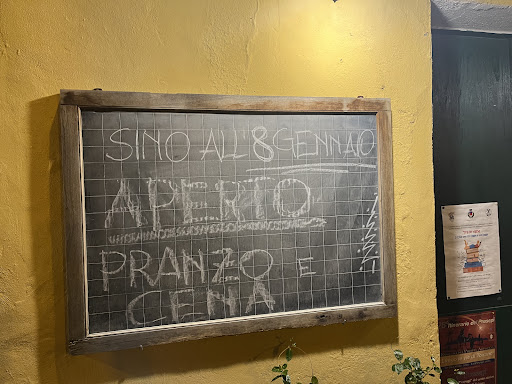 SINO ALL'8 GENNAIO
APERTO
PRANZO E
CENA
!!!!